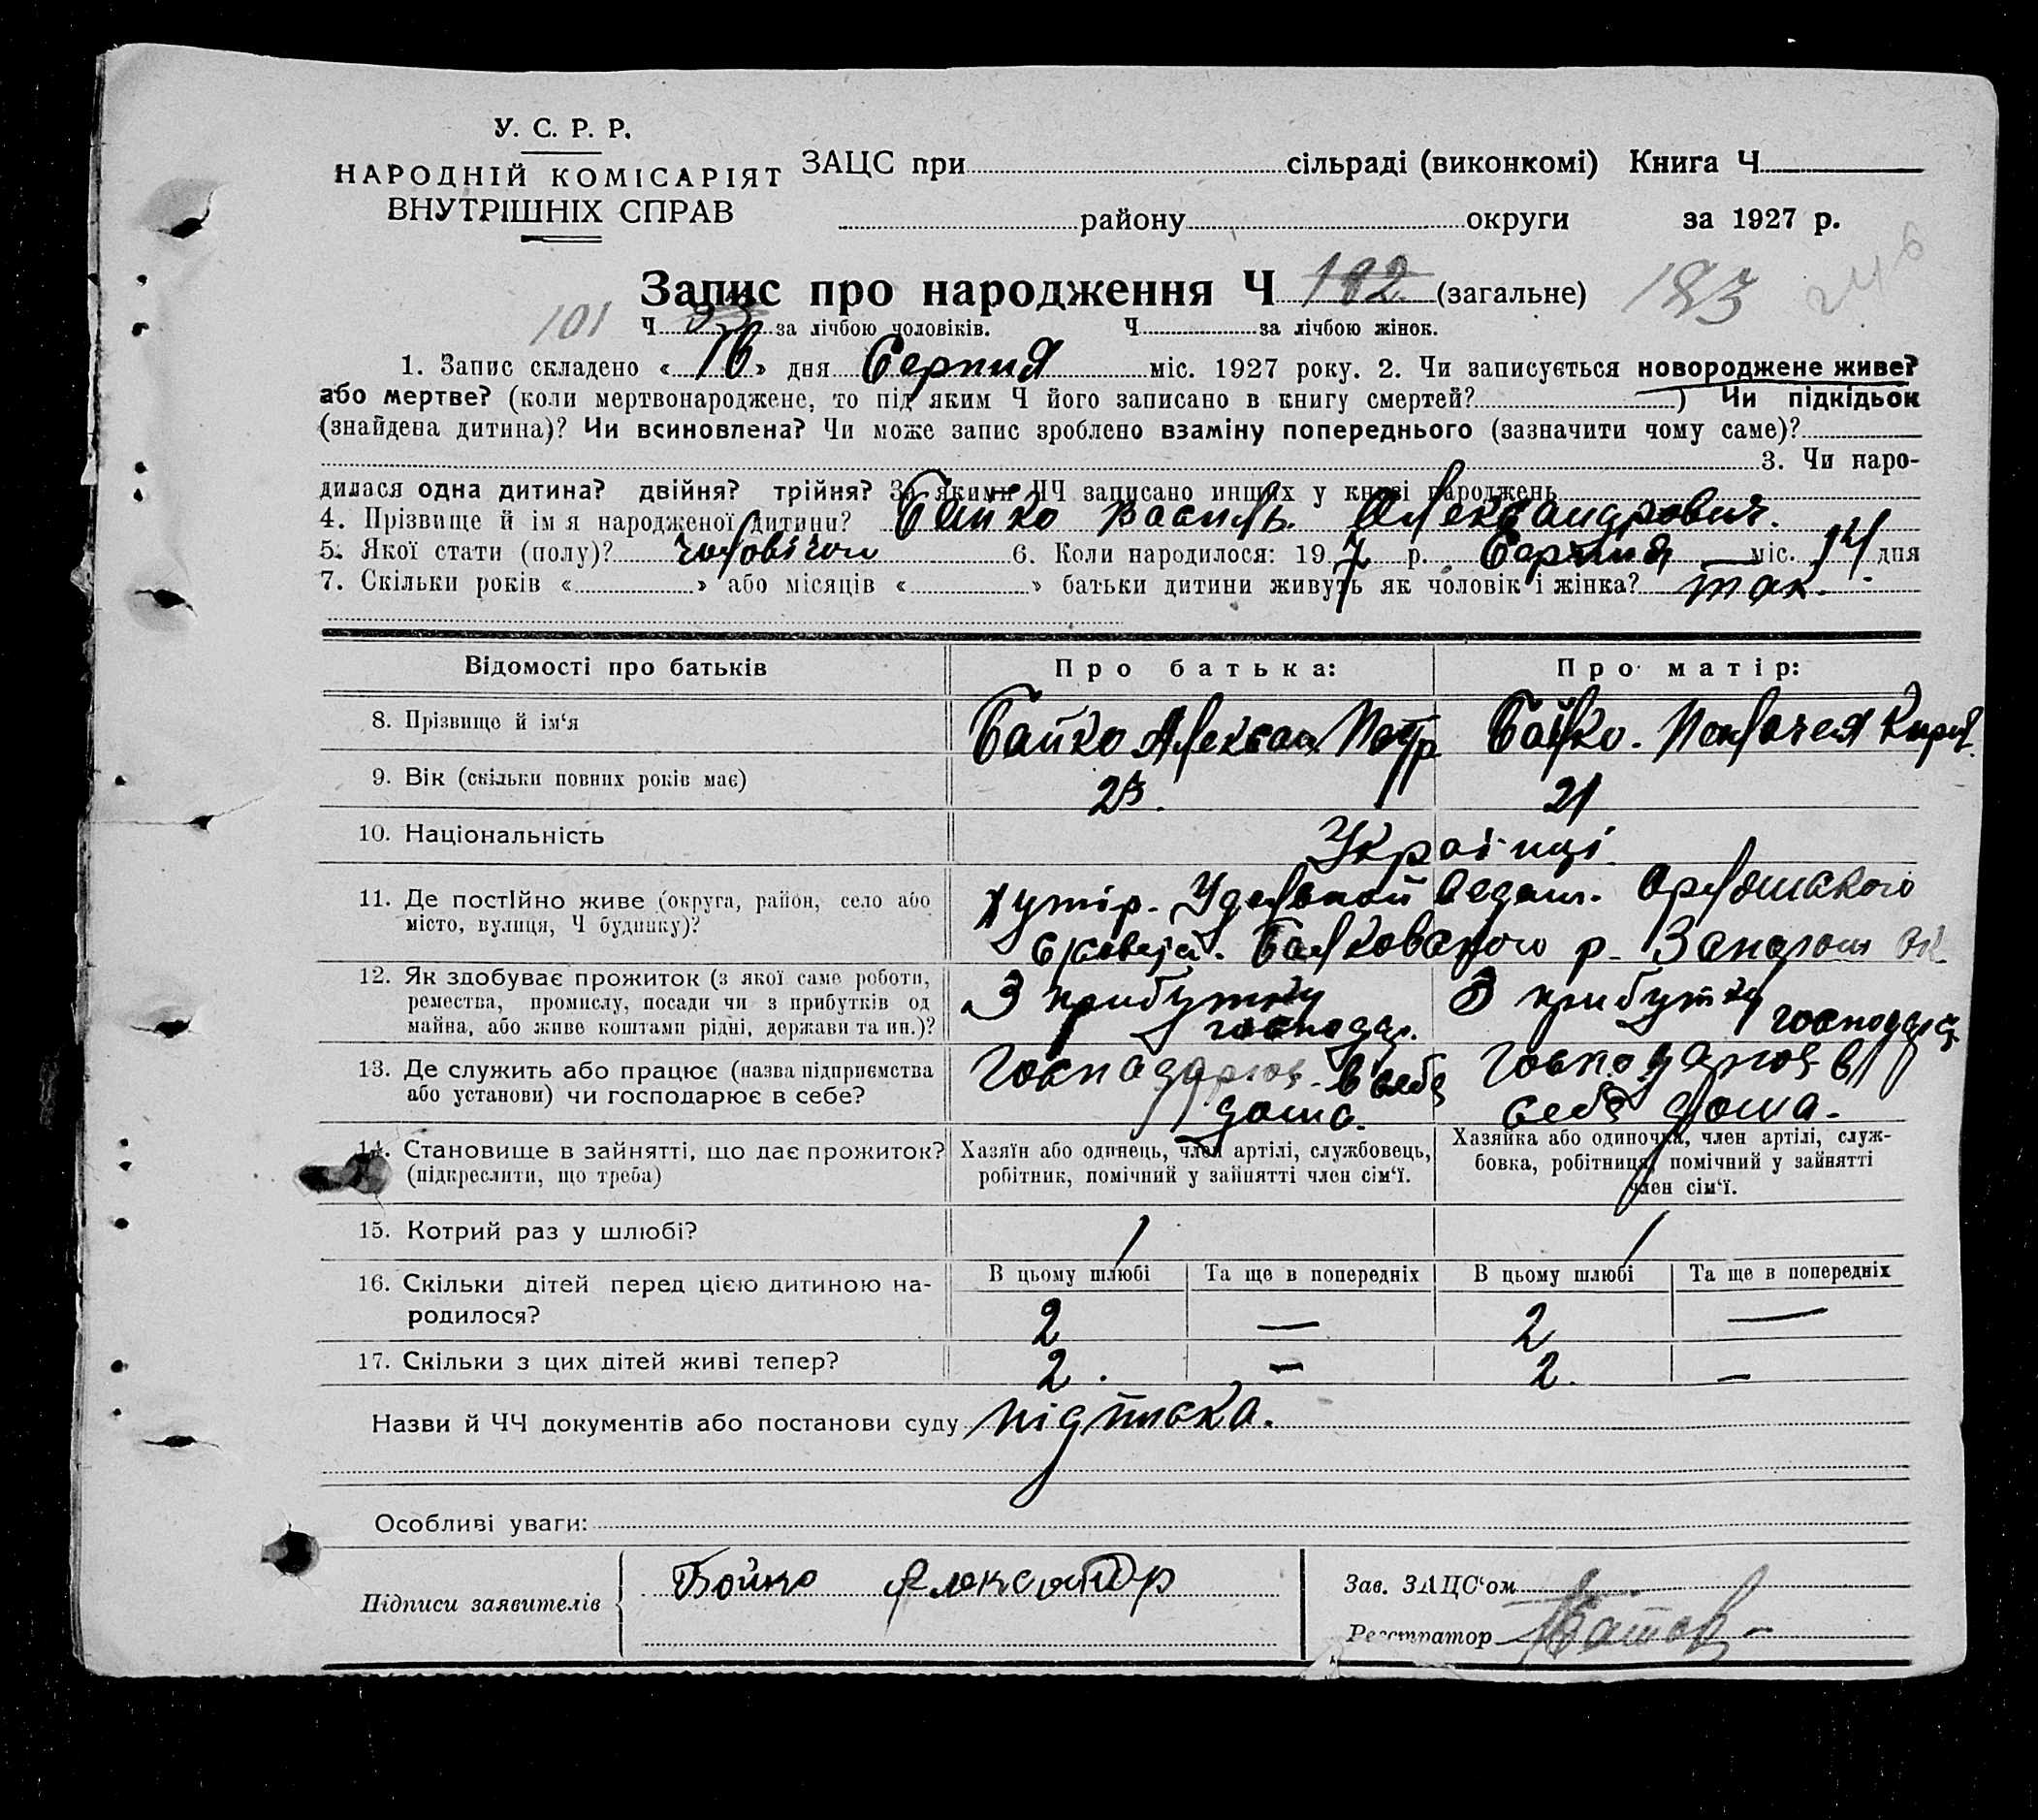 У. С. Р. Р.
НАРОДНІЙ КОМІСАРІЯТ
ВНУТРІШНІХ СПРАВ
ЗАЦС при сільраді (виконкомі) Книга Ч
району округи за 1927 р.
Запис про народження Ч 192 (загальне) 183 246
101 Ч 93 за лічбою чоловіків. Ч за лічбою жінок.
1. Запис складено « 16 » дня Серпня міс. 1927 року. 2. Чи записується новороджене живе?
або мертве? (коли мертвонароджене, то під яким Ч його записано в книгу смертей? ) Чи підкідьок
(знайдена дитина)? Чи всиновлена? Чи може запис зроблено взаміну попереднього (зазначити чому саме)?
3. Чи наро-
дилася одна дитина? двійня? трійня? За якими ЧЧ записано инших у книзі народжень
4. Прізвище й ім я народженої дитини? Байко Василь Александрович.
5. Якої стати (полу)? чоловічої 6. Коли народилося: 19 7 р. Серпня міс. 14 дня
7. Скільки років « » або місяців « » батьки дитини живуть як чоловік і жінка? так.
Відомості про батьків
Про батька:
Про матір:
8. Прізвище й ім‘я
Байко Алексан Петр
Байко.
9. Вік (скільки повних років має)
23.
21
10. Національність
Українці.
11. Де постІйно живе (округа, район, село або
місто, вулиця, Ч будинку)?
хутір. р. Запорож
12. Як здобуває прожиток (з якої саме роботи,
ремества, промислу, посади чи з прибутків од
майна, або живе коштами рідні, держави та ин.)?
З прибутку
господар.
З прибутку
господар
13. Де служить або працює (назва підприємства
або установи) чи господарює в себе?
Господарює в себе
дома.
Господарює в
себе дома.
14. Становище в зайнятті, що дає прожиток?
(підкреслити, що треба)
Хазяїн або одинець, член артілі, службовець,
робітник, помічний у зайнятті член сім‘ї.
Хазяйка або одиночка, член артілі, служ-
бовка, робітниця, помічний у зайнятті
член сім‘ї.
15. Котрий раз у шлюбі?
1
1
16. Скільки дітей перед цією дитиною на-
родилося?
В цьому шлюбі
Та ще в попередніх
В цьому шлюбі
Та ще в попередніх
2 — 2 —
17. Скільки з цих дітей живі тепер?
2. — 2. —
Назви й ЧЧ документів або постанови суду підписка.
Особливі уваги:
Підписи заявителів
Бойко Александр
Зав. ЗАЦС‘ом
Реєстратор